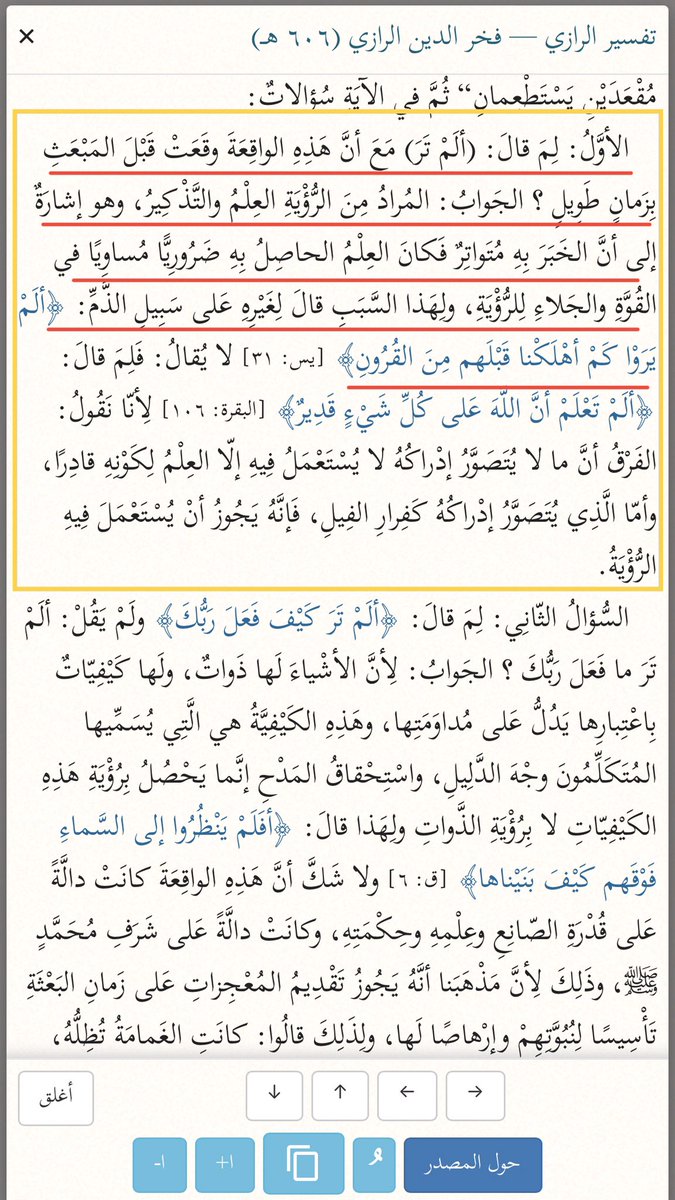 تفسير الرازي — فخر الدين الرازي (٦٠٦ هـ)
×
مُقْعَدَيْنِ يَسْتَطْعمانِ“ ثُمَّ في الآيَةِ سُؤالاتٌ:
الأوَّلُ: لِمَ قالَ: (ألَمْ تَرَ) مَعَ أنَّ هَذِهِ الواقِعَةَ وقَعَتْ قَبْلَ المَبْعَثِ
بِزَمانٍ طَوِيلٍ ؟ الجَوابُ: المُرادُ مِنَ الرُّؤْيَةِ العِلْمُ والتَّذْكِيرُ، وهو إشارَةٌ
إلى أنَّ الخَبَرَ بِهِ مُتَواتِرٌ فَكانَ العِلْمُ الحاصِلُ بِهِ ضَرُورِيًّا مُساوِيًا في
القُوَّةِ والجَلاءِ لِلرُّؤْيَةِ، ولِهَذا السَّبَبِ قالَ لِغَيْرِهِ عَلى سَبِيلِ الذَّمِّ: ﴿ألَمْ
يَرَوْا كَمْ أهْلَكْنا قَبْلَهم مِنَ القُرُونِ﴾ [يس: ٣١] لا يُقالُ: فَلِمَ قالَ:
﴿ألَمْ تَعْلَمْ أنَّ اللَّهَ عَلى كُلِّ شَيْءٍ قَدِيرٌ﴾ [البقرة: ١٠٦] لِأنّا نَقُولُ:
الفَرْقُ أنَّ ما لا يُتَصَوَّرُ إدْراكُهُ لا يُسْتَعْمَلُ فِيهِ إلّا العِلْمُ لِكَوْنِهِ قادِرًا،
وأمّا الَّذِي يُتَصَوَّرُ إدْراكُهُ كَفِرارِ الفِيلِ، فَإنَّهُ يَجُوزُ أنْ يُسْتَعْمَلَ فِيهِ
الرُّؤْيَةُ.
السُّؤالُ الثّانِي: لِمَ قالَ: ﴿ألَمْ تَرَ كَيْفَ فَعَلَ رَبُّكَ﴾ ولَمْ يَقُلْ: ألَمْ
تَرَ ما فَعَلَ رَبُّكَ ؟ الجَوابُ: لِأنَّ الأشْياءَ لَها ذَواتٌ، ولَها كَيْفِيّاتٌ
بِاعْتِبارِها يَدُلُّ عَلى مُداوَمَتِها، وهَذِهِ الكَيْفِيَّةُ هي الَّتِي يُسَمِّيها
المُتَكَلِّمُونَ وجْهَ الدَّلِيلِ، واسْتِحْقاقُ المَدْحِ إنَّما يَحْصُلُ بِرُؤْيَةِ هَذِهِ
الكَيْفِيّاتِ لا بِرُؤْيَةِ الذَّواتِ ولِهَذا قالَ: ﴿أفَلَمْ يَنْظُرُوا إلى السَّماءِ
فَوْقَهم كَيْفَ بَنَيْناها﴾ [ق: ٦] ولا شَكَّ أنَّ هَذِهِ الواقِعَةَ كانَتْ دالَّةً
عَلى قُدْرَةِ الصّانِعِ وعِلْمِهِ وحِكْمَتِهِ، وكانَتْ دالَّةً عَلى شَرَفِ مُحَمَّدٍ
ﷺ، وذَلِكَ لِأنَّ مَذْهَبَنا أنَّهُ يَجُوزُ تَقْدِيمُ المُعْجِزاتِ عَلى زَمانِ البَعْثَةِ
تَأْسِيسًا لِنُبُوَّتِهِمْ وإرْهاصًا لَها، ولِذَلِكَ قالُوا: كانَتِ الغَمامَةُ تُظِلُّهُ،
→ ← ↑ ↓ أغلق
حول المصدر ـُر ا+ ا-